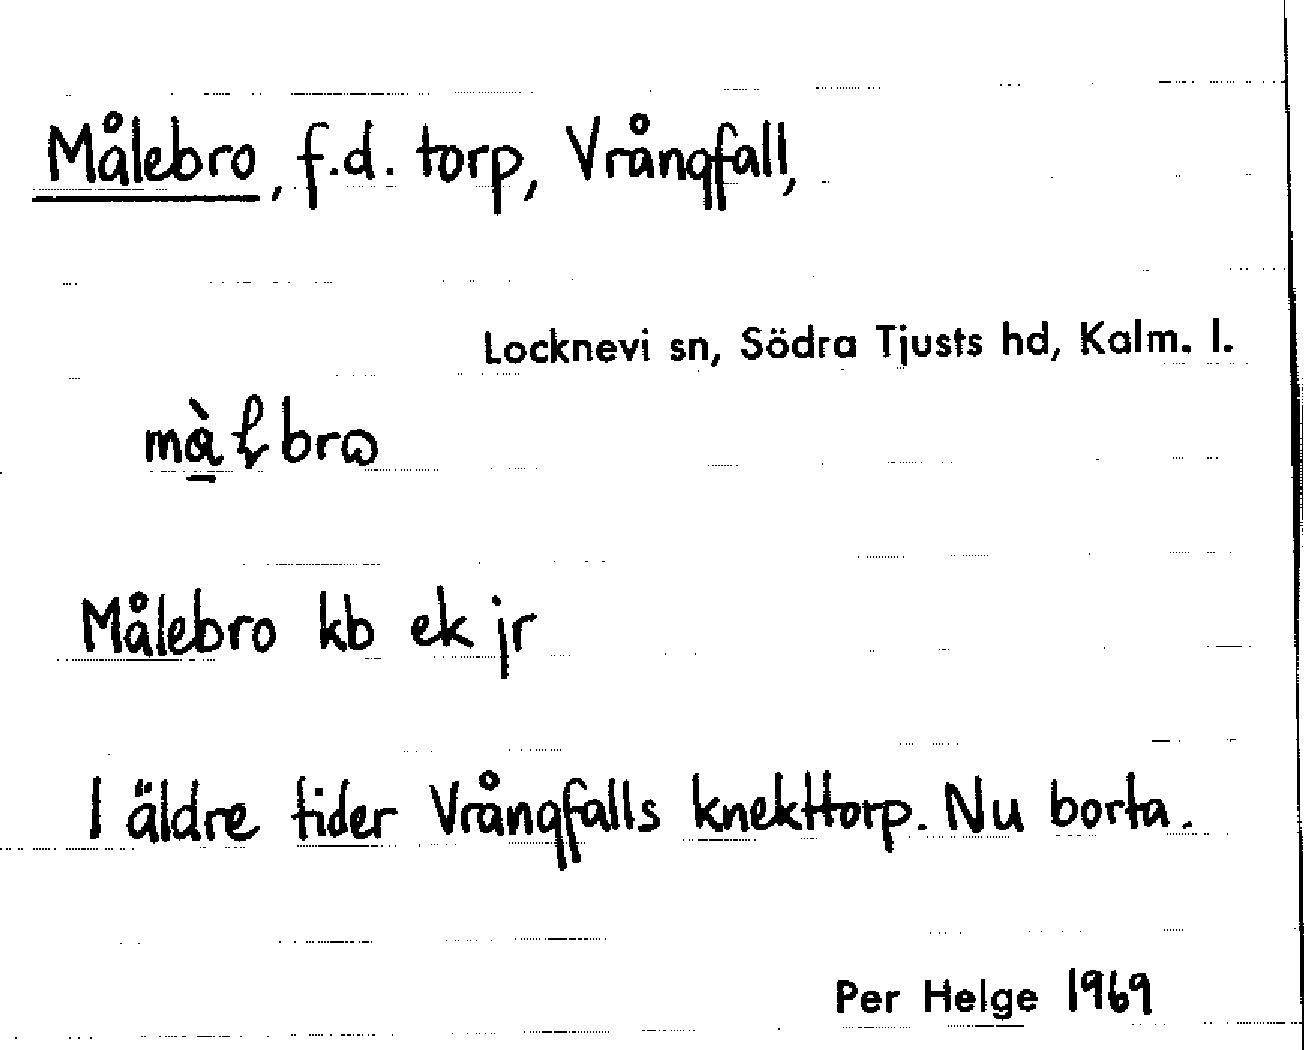 Målebro, f.d. torp, Vrångfall,
Locknevi sn, Södra Tjusts hd, Kalm. l.
Målebro kb ek jr
I äldre tider Vrångfalls knekttorp. Nu borta.
Per Helge 1969